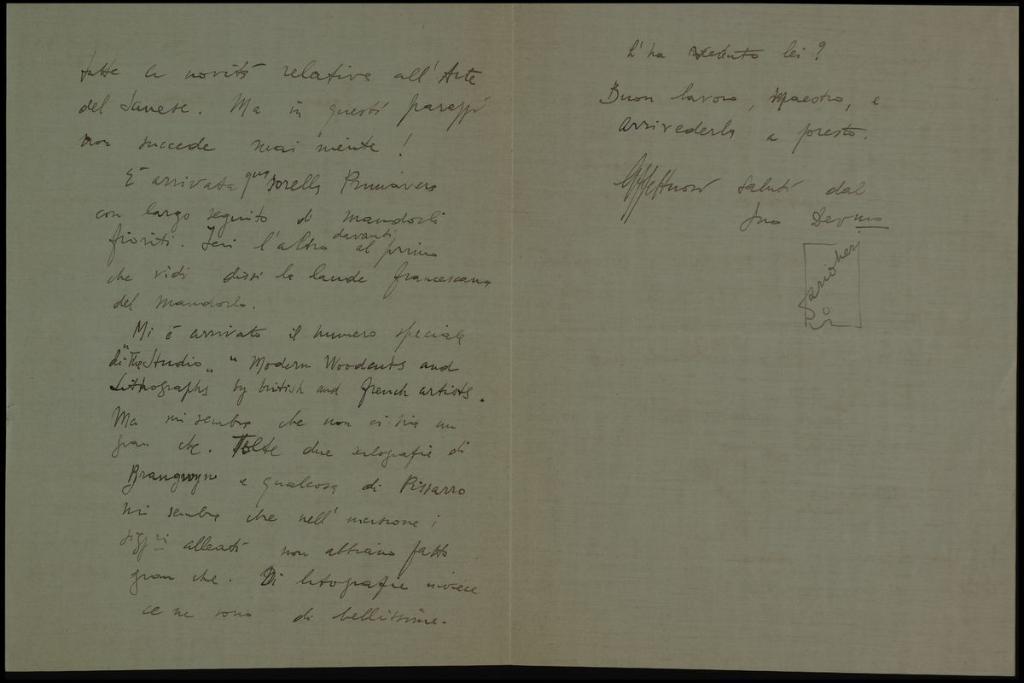 tutte le novità relative all'Arte
del Paese. Ma in questi paraggi
non succede mai niente!
È arrivata qui sorella Primavera
con largo seguito di mandorli
fioriti. Ieri l'altro davanti al primo
che vidi dissi la laude francescana
del mandorlo.
Mi è arrivato il numero speciale
di "The Studio" "Modern Woodcuts and
Lithographs by british and french artists.
Ma mi sembra che non ci sia un
gran che. Tolte due xilografie di
Brangwyn e qualcosa di Pissarro
mi sembra che nell'incisione i
sigg.ri alleati non abbiano fatto
gran che. Di litografie invece
ce ne sono di bellissime.
L'ha veduto lei?
Buon lavoro, Maestro, e
arrivederla a presto.
Affettuosi saluti dal
suo